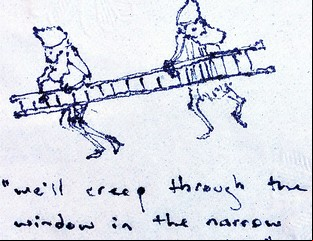 "we'll creep through the
window in the narrow